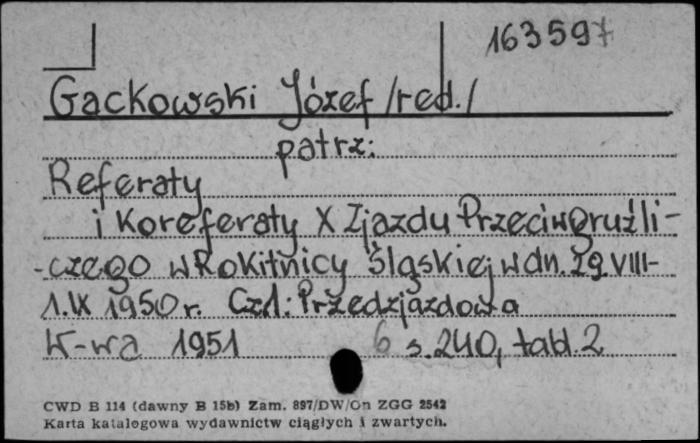 163597
Gackowski Józef /red./
patrz:
Referaty
i Koreferaty X Zjazdu Przeciwgruźli-
-czego w Rokitnicy Śląskiej w dn. 29.VIII-
1.IX 1950 r. Cz.1: Przedzjazdowa
W-wa 1951 6 s.240, tabl.2
CWD B 114 (dawny B 15b) Zam. 897/DW/On ZGG 2542
Karta katalogowa wydawnictw ciągłych i zwartych.